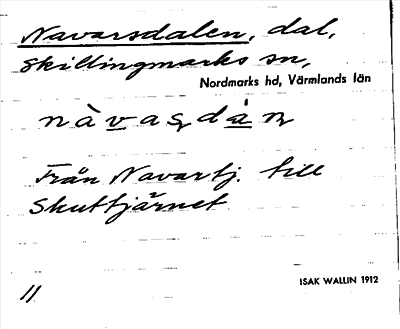 Navarsdalen, dal,
Skillingmarks sn,
Nordmarks hd, Värmlands län
nàvasdán
Från Navartj. till
Skuttjärnet
ISAK WALLIN 1912
11